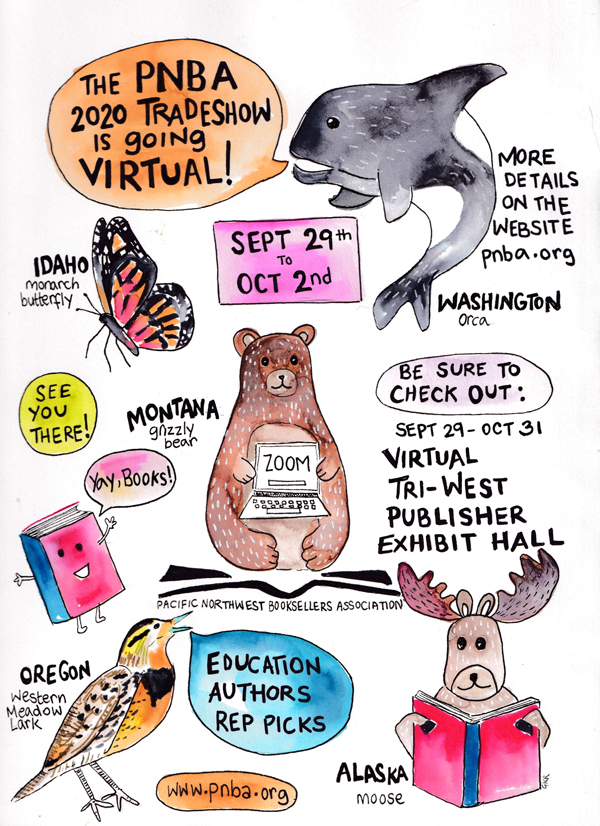 THE PNBA
2020 TRADESHOW
IS going
VIRTUAL!
MORE
DETAILS
ON THE
WEBSITE
pnba.org
SEPT 29th
TO
OCT 2nd
IDAHO
monarch
butterfly
WASHINGTON
Orca
SEE
YOU
THERE!
MONTANA
grizzly
bear
ZOOM
BE SURE TO
CHECK OUT:
SEPT 29-OCT 31
VIRTUAL
TRI-WEST
PUBLISHER
EXHIBIT HALL
YAY, BOOKS!
PACIFIC NORTHWEST BOOKSELLERS ASSOCIATION
OREGON
Western
Meadow
Lark
EDUCATION
AUTHORS
REP PICKS
www.pnba.org
ALASKA
moose